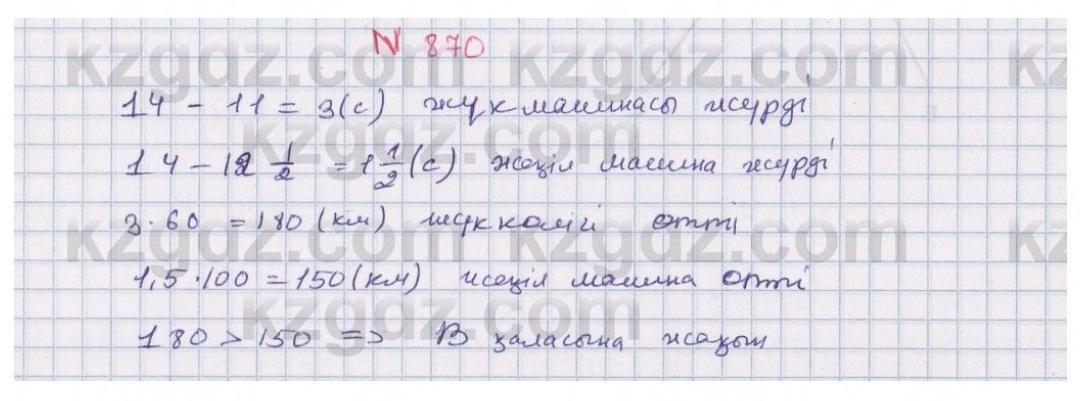 N 870
14 - 11 = 3(с) жүк машинасы жүрді
14 - 12 1/2 = 1 1/2 (с) жеңіл машина жүрді
3·60 = 180 (км) жүк көлігі өтті
1,5·100 = 150 (км) жеңіл машина өтті
180 > 150 => В қаласына жақын
kzgdz.com kzgdz.com kz
kzgdz.com
kzgdz.com kzgdz.com kz
kzgdz.com